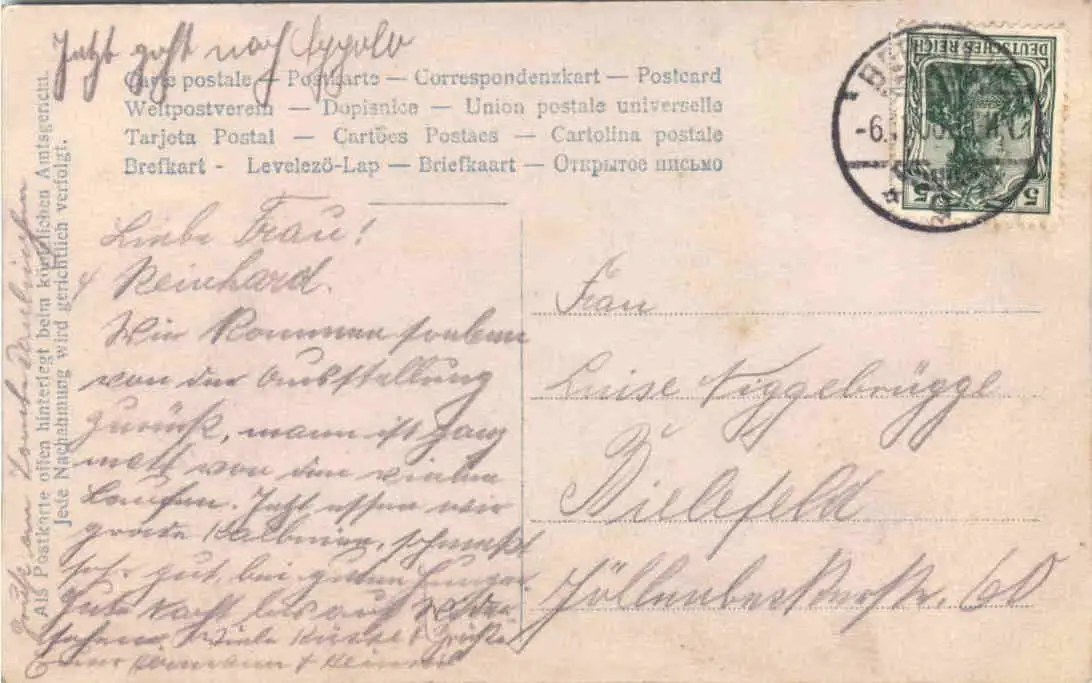 Jetzt geht nach
Carte postale — Postkarte — Correspondenzkart — Postcard
Weltpostverein — Dopisnice — Union postale universelle
Tarjeta Postal — Cartões Postaes — Cartolina postale
Brefkart - Levelező-Lap — Briefkaart — Открытое письмо
Liebe Frau!
& Reinhard.
Wir kommen soeben
von der Ausstellung
zurück, mann ist ganz
matt von den vielen
Laufen. Jetzt essen wir
grade, schmeckt
sehr gut, bei guten Hunger
Gute Nacht bis auf Wieder-
sehen. Viele Küsse & Grüße
&
Grüße an
Als Postkarte offen hinterlegt beim königlichen Amtsgericht.
Jede Nachahmung wird gerichtlich verfolgt.
DEUTSCHES REICH
5 5
-6.
Frau
Luise Niggebrügge
Bielefeld
Jöllenbeckerstr. 60